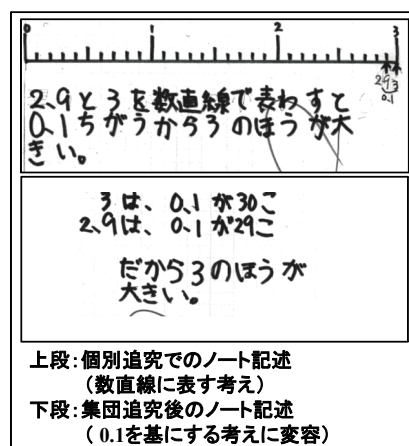 0 1 2 3
2.9 3
0.1
2.9と3を数直線で表わすと
0.1ちがうから3のほうが大
きい。
3は、0.1が30こ
2.9は、0.1が29こ
だから3のほうが
大きい。
上段：個別追究でのノート記述
（数直線に表す考え）
下段：集団追究後のノート記述
（0.1を基にする考えに変容）